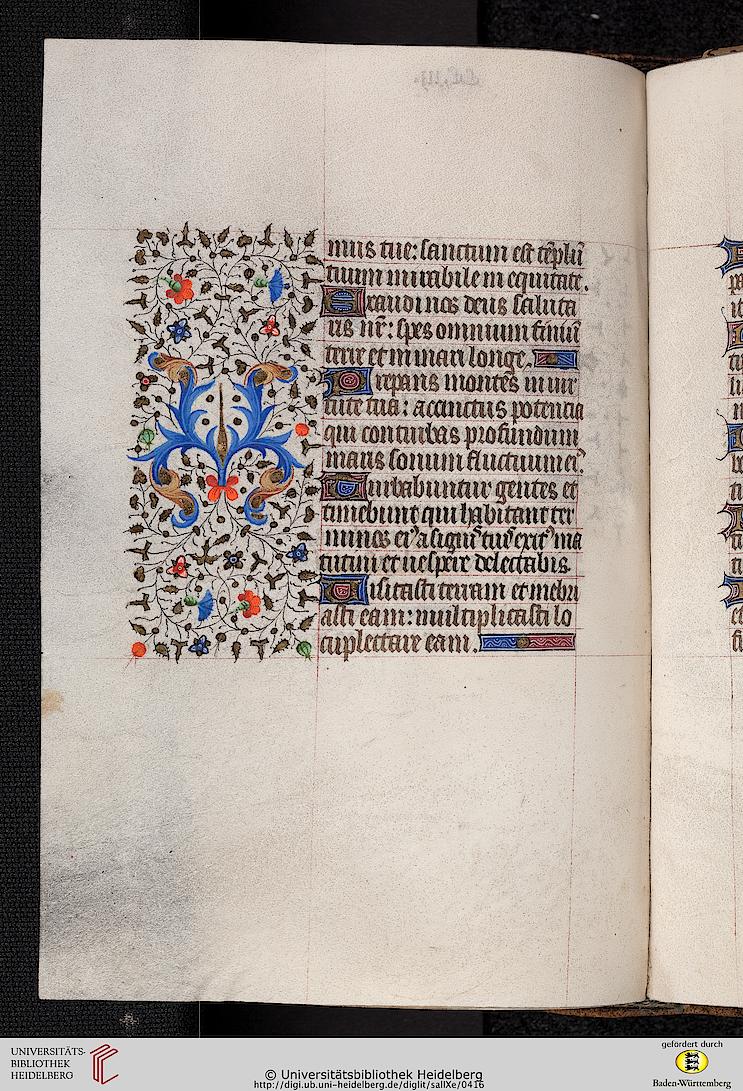 mus tue: sanctum est tẽplũ
tuum mirabile in equitate.
Exaudi nos deus saluta
ris nr̃: spes omnium finiũ
terre et in mari longe.
Preparans montes in vir
tute tua: accinctus potentia
qui conturbas profundum
maris sonum fluctuum ei⁹.
Turbabuntur gentes et
timebunt qui habitant ter
minos ei⁹ a signis tuis exit⁹ ma
tutini et vespere delectabis.
Visitasti terram et inebri
asti eam: multiplicasti lo
cupletare eam.
UNIVERSITÄTS-
BIBLIOTHEK
HEIDELBERG
© Universitätsbibliothek Heidelberg
http://digi.ub.uni-heidelberg.de/diglit/salIXe/0416
gefördert durch
Baden-Württemberg